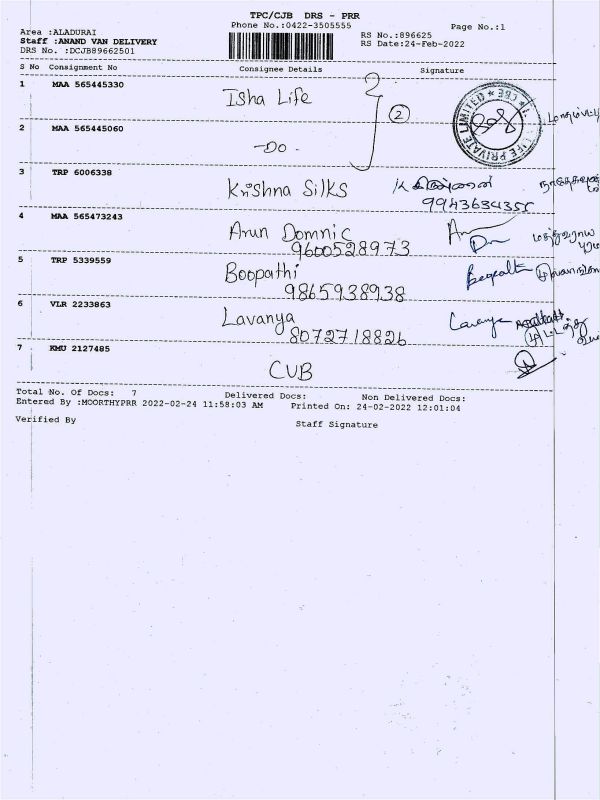 TPC/CJB DRS - PRR
Phone No.:0422-3505555
Page No.:1
Area :ALADURAI
Staff :ANAND VAN DELIVERY
DRS No. :DCJB89662501
RS No.:896625
RS Date:24-Feb-2022
S No Consignment No Consignee Details Signature
1 MAA 565445330 Isha Life
2
2 MAA 565445060 -DO-
3 TRP 6006338 Krishna Silks
9943634355
4 MAA 565473243 Arun Domnic
9600528973
5 TRP 5339559 Boopathi
9865938938
6 VLR 2233863 Lavanya
8072718826
7 KMU 2127485 CUB
Total No. Of Docs: 7 Delivered Docs: Non Delivered Docs:
Entered By :MOORTHYPRR 2022-02-24 11:58:03 AM Printed On: 24-02-2022 12:01:04
Verified By Staff Signature